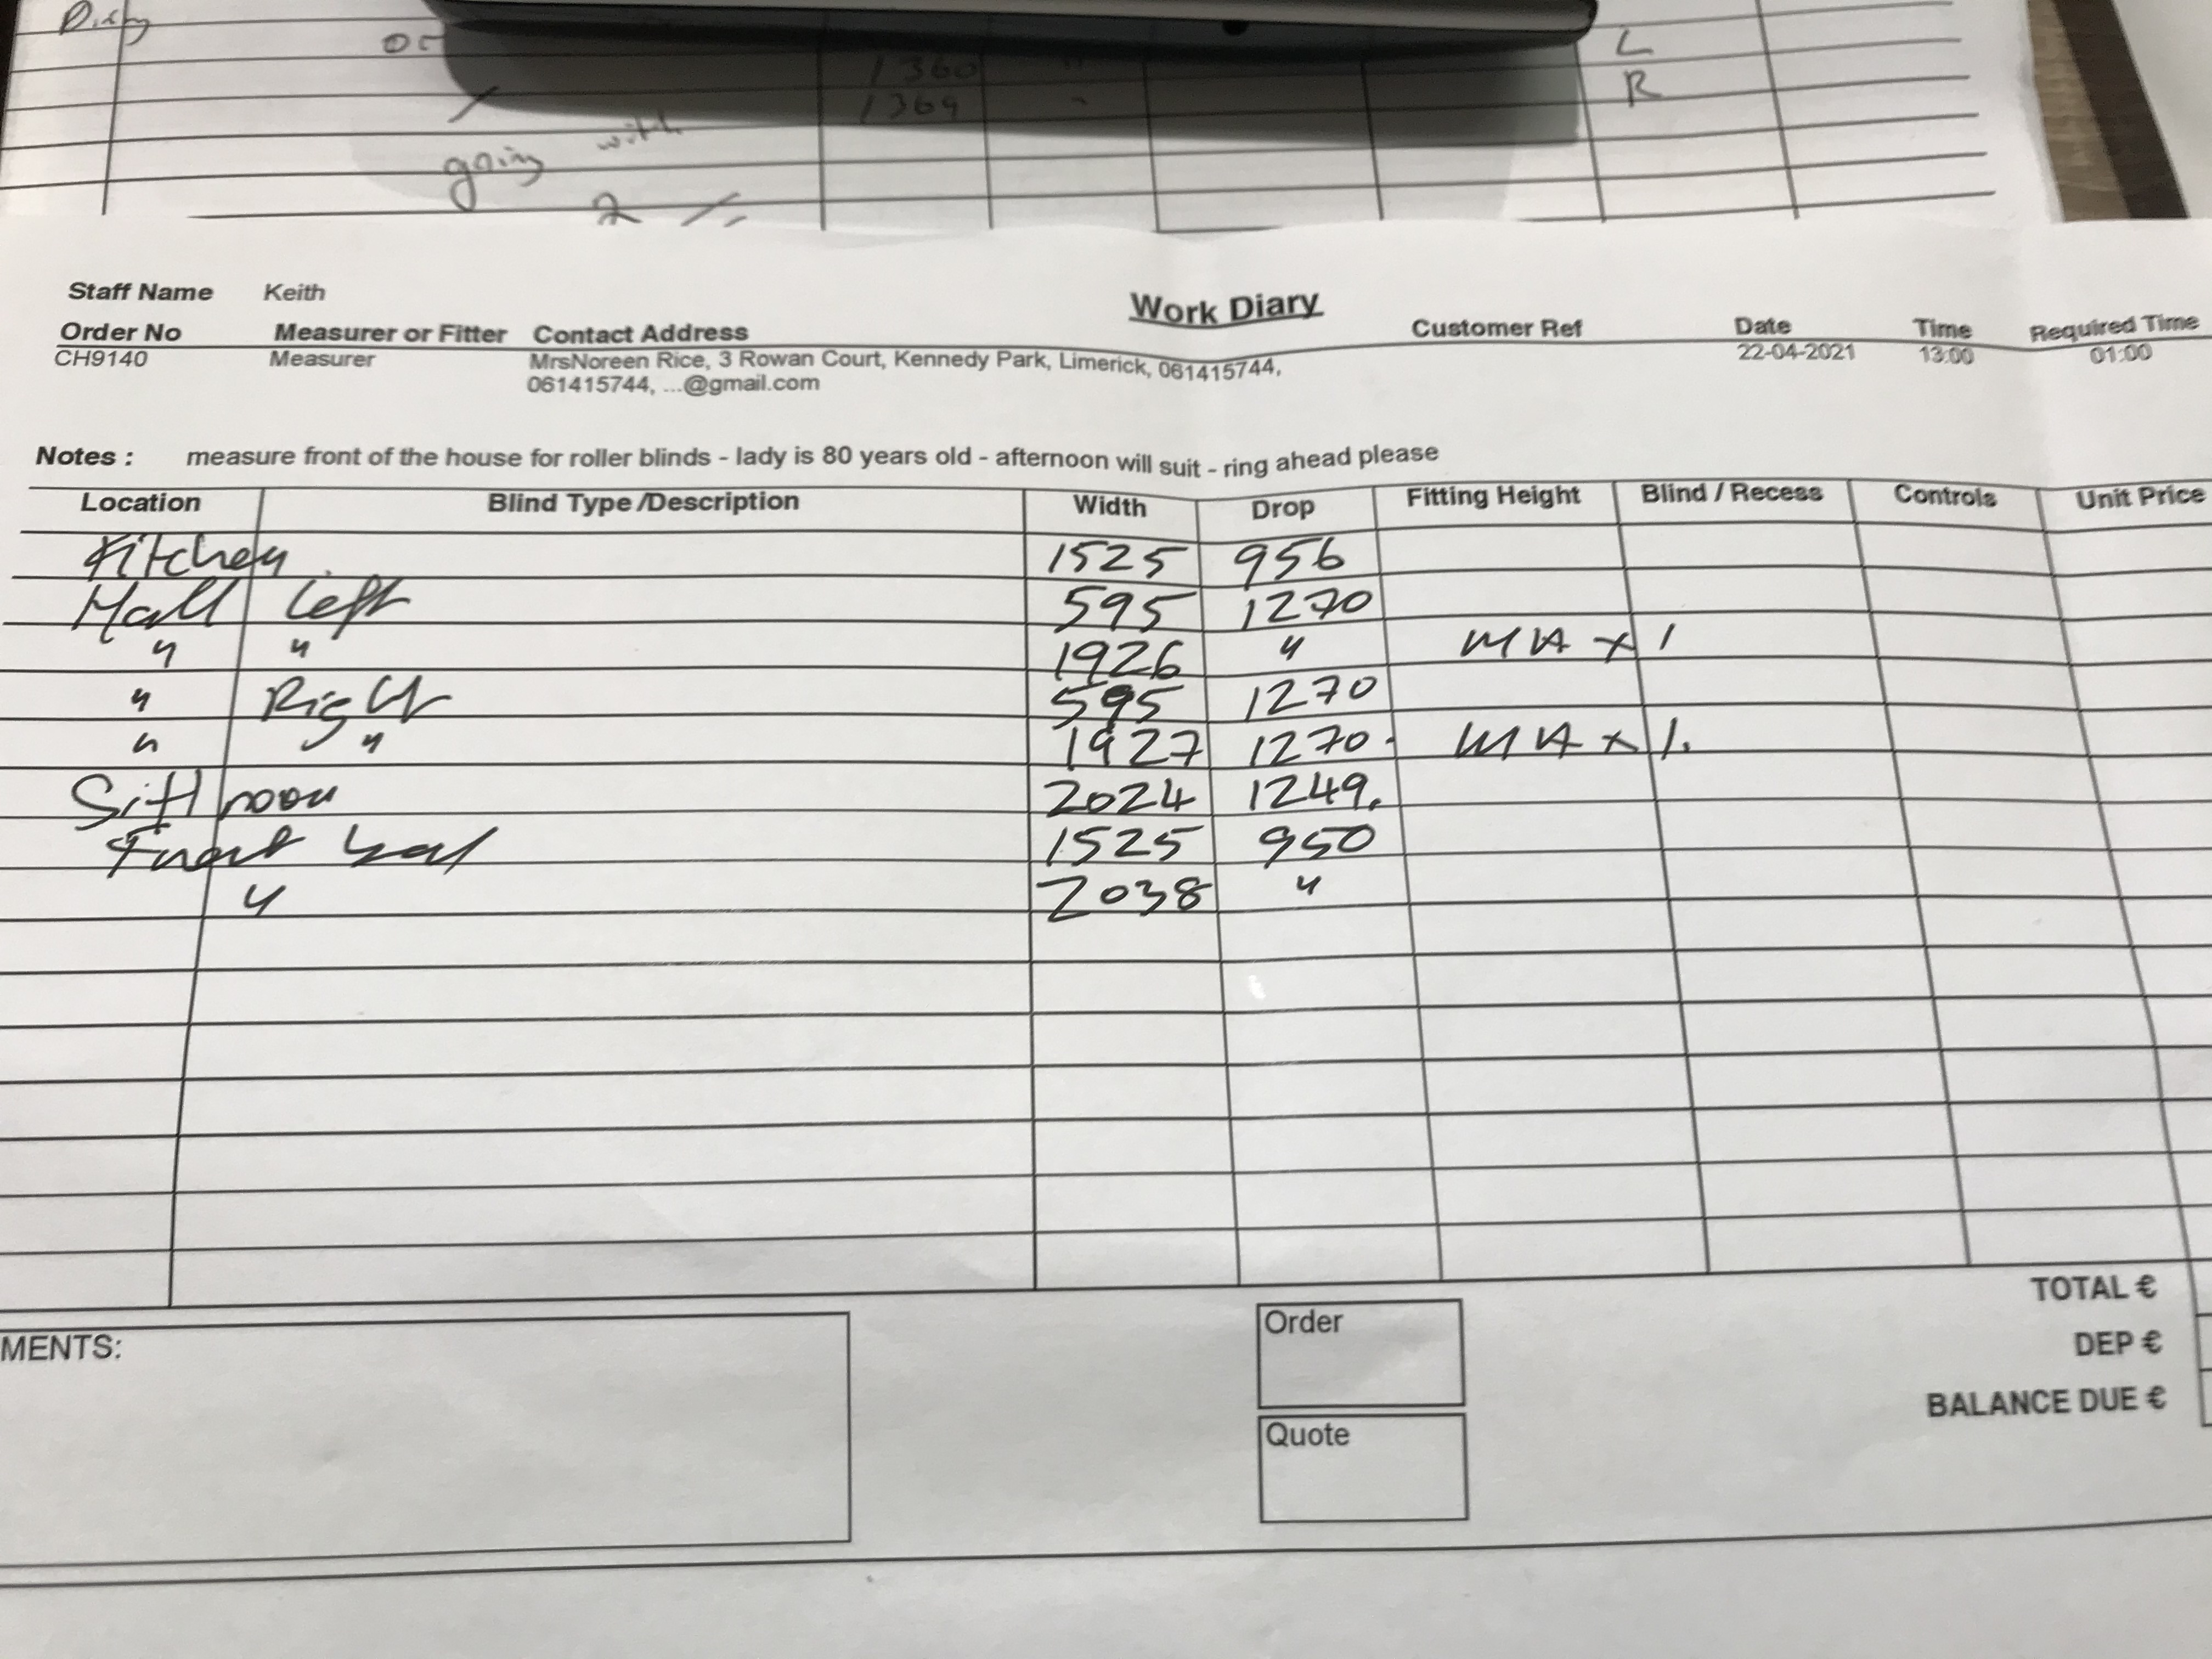 Diby
or
L
1360 "
R
1369
going with
2
Staff Name Keith
Work Diary
Order No Measurer or Fitter Contact Address Customer Ref Date Time Required Time
CH9140 Measurer MrsNoreen Rice, 3 Rowan Court, Kennedy Park, Limerick, 061415744, 22-04-2021 13:00 01:00
061415744, ...@gmail.com
Notes : measure front of the house for roller blinds - lady is 80 years old - afternoon will suit - ring ahead please
Location Blind Type /Description Width Drop Fitting Height Blind / Recess Controls Unit Price
Kitchen 1525 956
Hall left 595 1270
" " 1926 " MA x 1
" Right 595 1270
" " 1927 1270. MA x 1.
Sitt room 2024 1249.
Front 1525 950
" 2038 "
MENTS:
Order
Quote
TOTAL €
DEP €
BALANCE DUE €